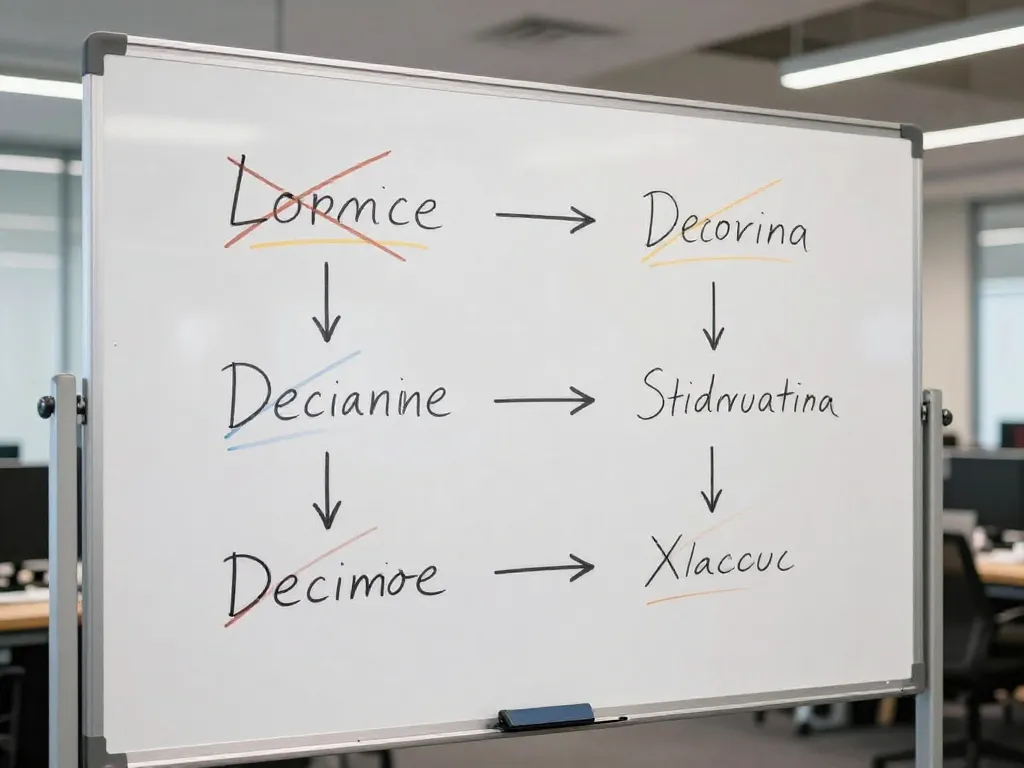 Lopmice → Decorina
Decianine → Stidrvuatina
Decimioe → Xlaccuc